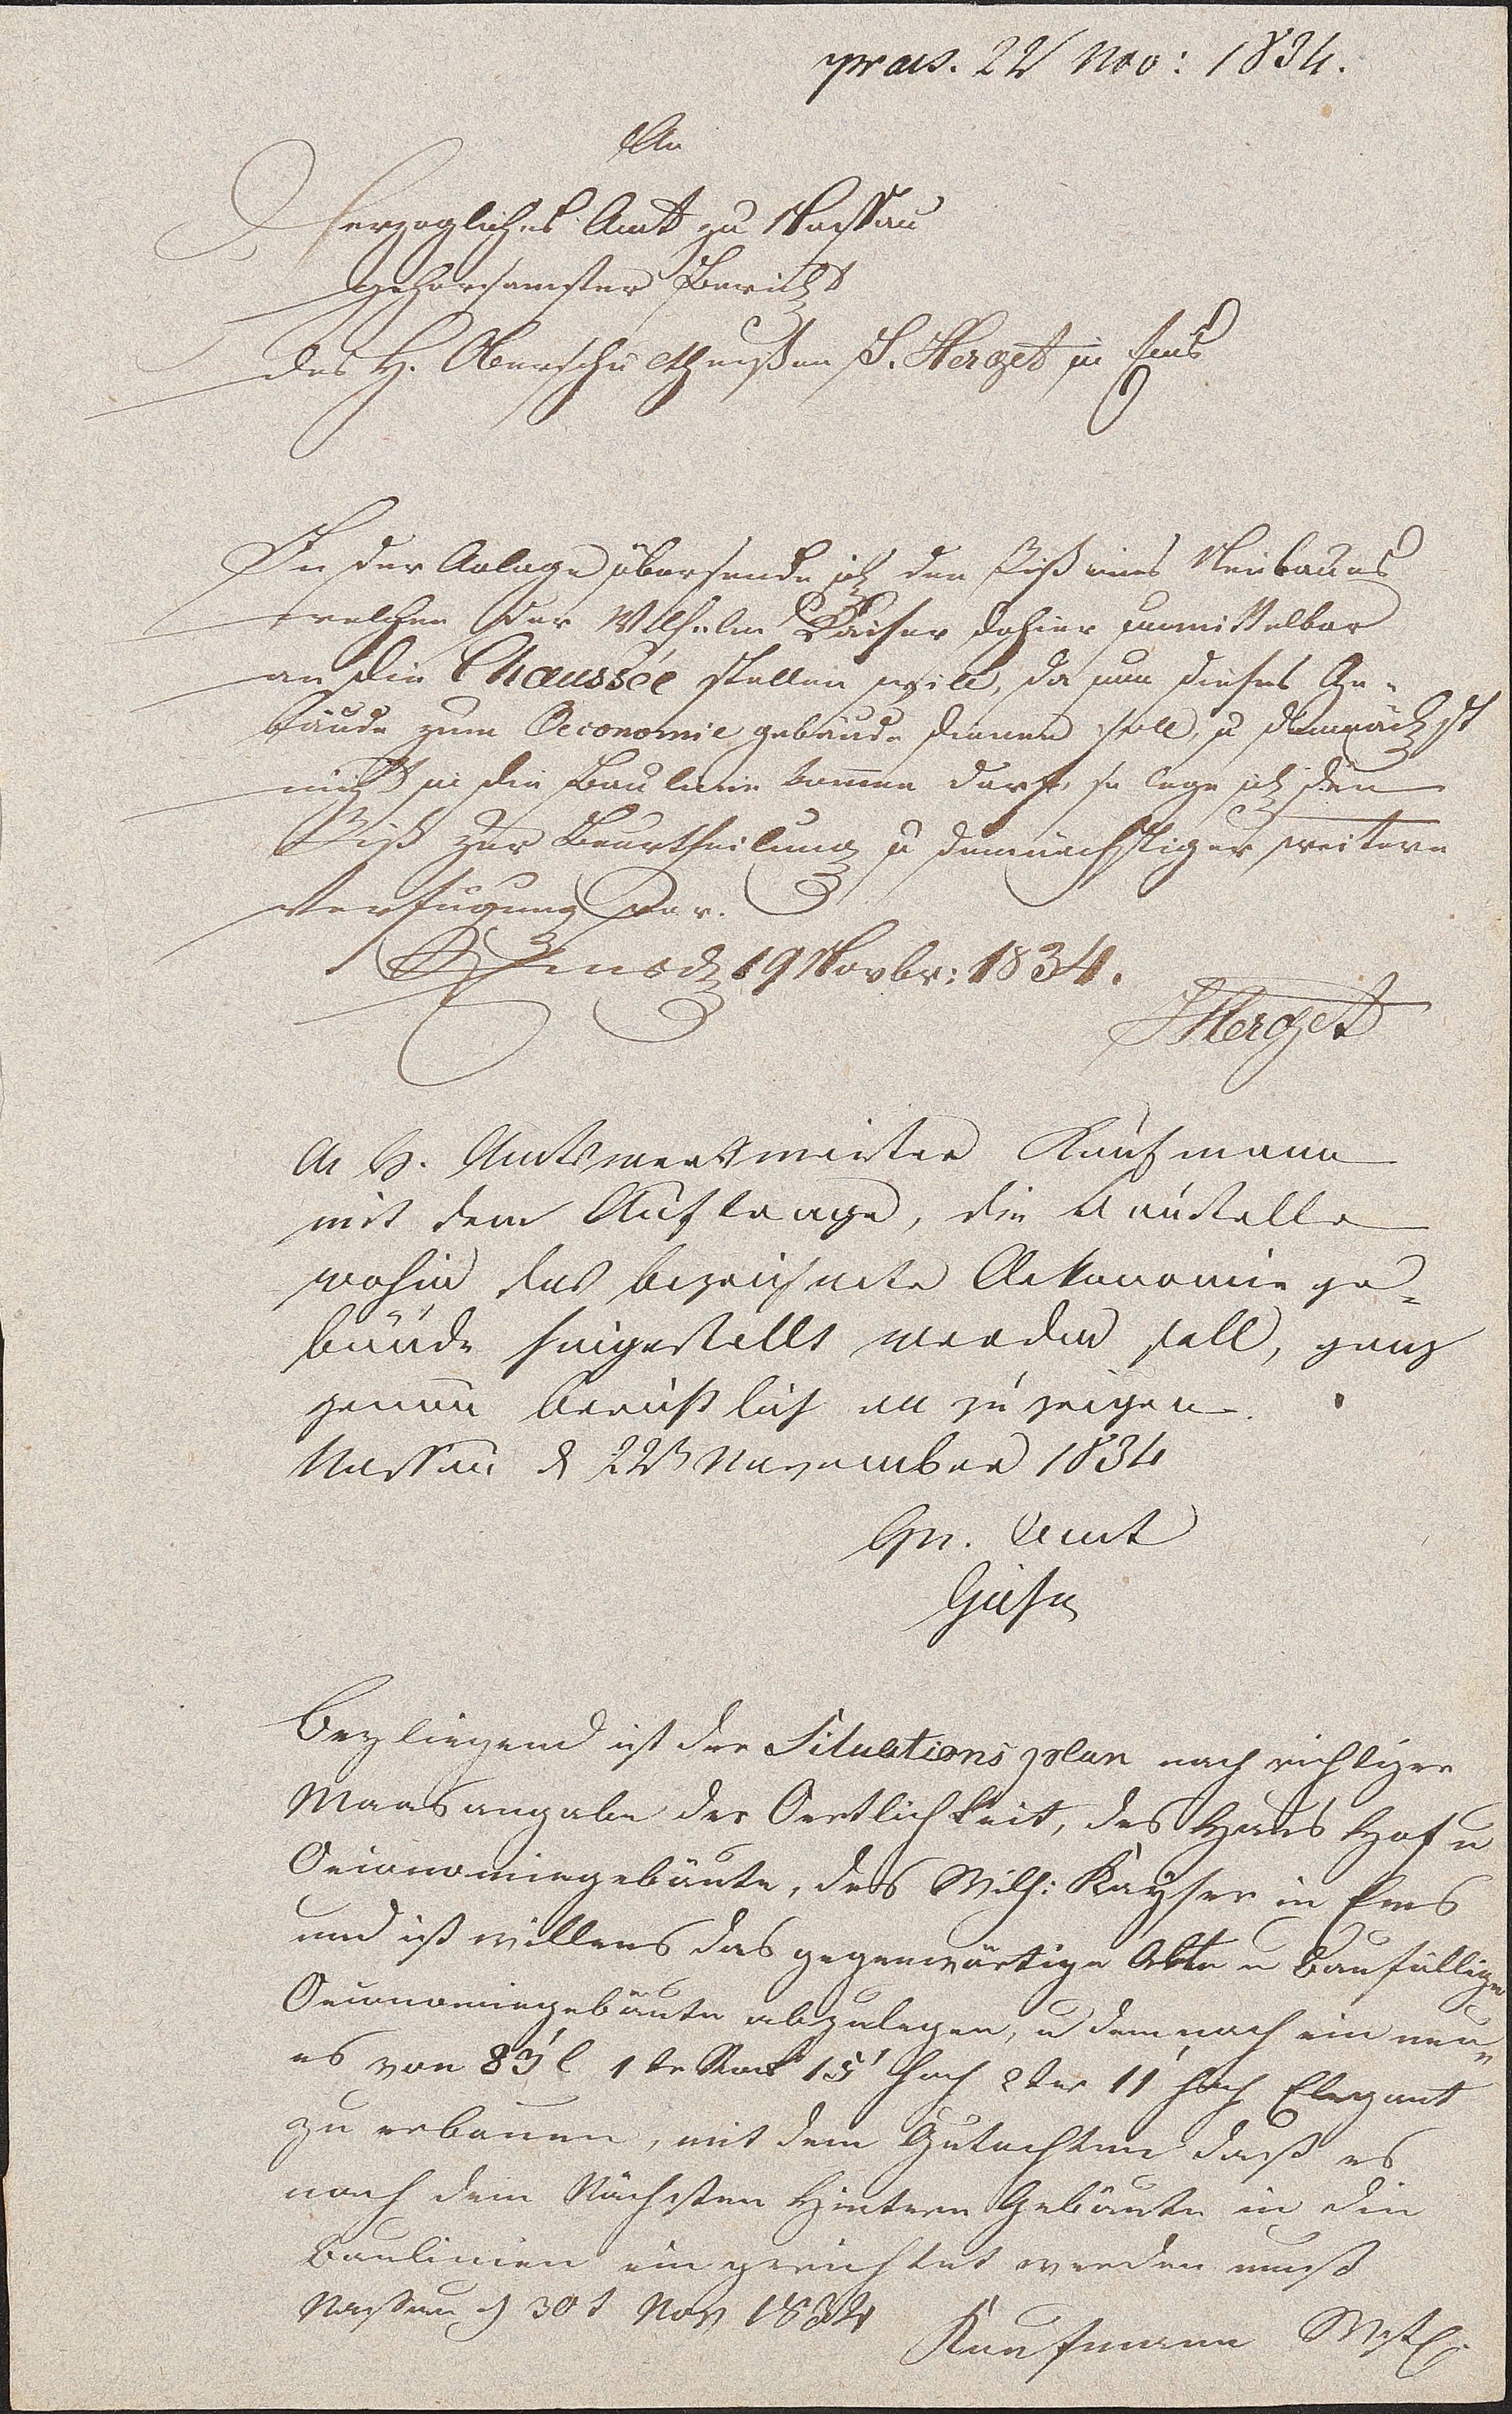 praes. 22 Nov: 1834.
An
Herzogliches Amt zu Nassau
gehorsamster Bericht
des H. Oberschultheißen J. Herget in Ems
In der Anlage übersende ich den Riß eines Neubaues
welchen der Wilhelm Kaiser dahier unmittelbar
an die Chaussée stellen will, da nun dieses Ge-
bäude zum Oeconomie gebäude dienen soll, u demnächst
nicht in die Baulinie kommen darf, so lege ich den
Riß zur Beurtheilung u demnächstiger weitere
Verfügung vor.
Ems d 19 Novbr: 1834.
JHerget
An H. Amtswerkmeister Kaufmann
mit dem Auftrage, die Baustelle
wohin das bezeichnete Oekonomie ge-
bäude hingestellt werden soll, ganz
genau berichtlich an zu zeigen.
Nassau d 22t November 1834
Hzn. Amt
Beyliegend ist der Situations plan nach richtiger
Maasangabe der Oertlichkeit, des Haus Hof u
Oeconomiegebäute, des Wilh: Kayser in Ems
und ist willens das gegenwärtige Alte u Baufällige
Oeconomiegebäute abzulegen, u demnach ein neu-
es von 83' l 1te Stock 15' hoch 2ter 11' hoch Elegant
zu erbauen, mit dem Gutachten daß es
nach dem Nächsten Hintern Gebäute in die
Baulinien ein gerichtet werden muß
Nassau d 30t Nov 1834
Kaufmann